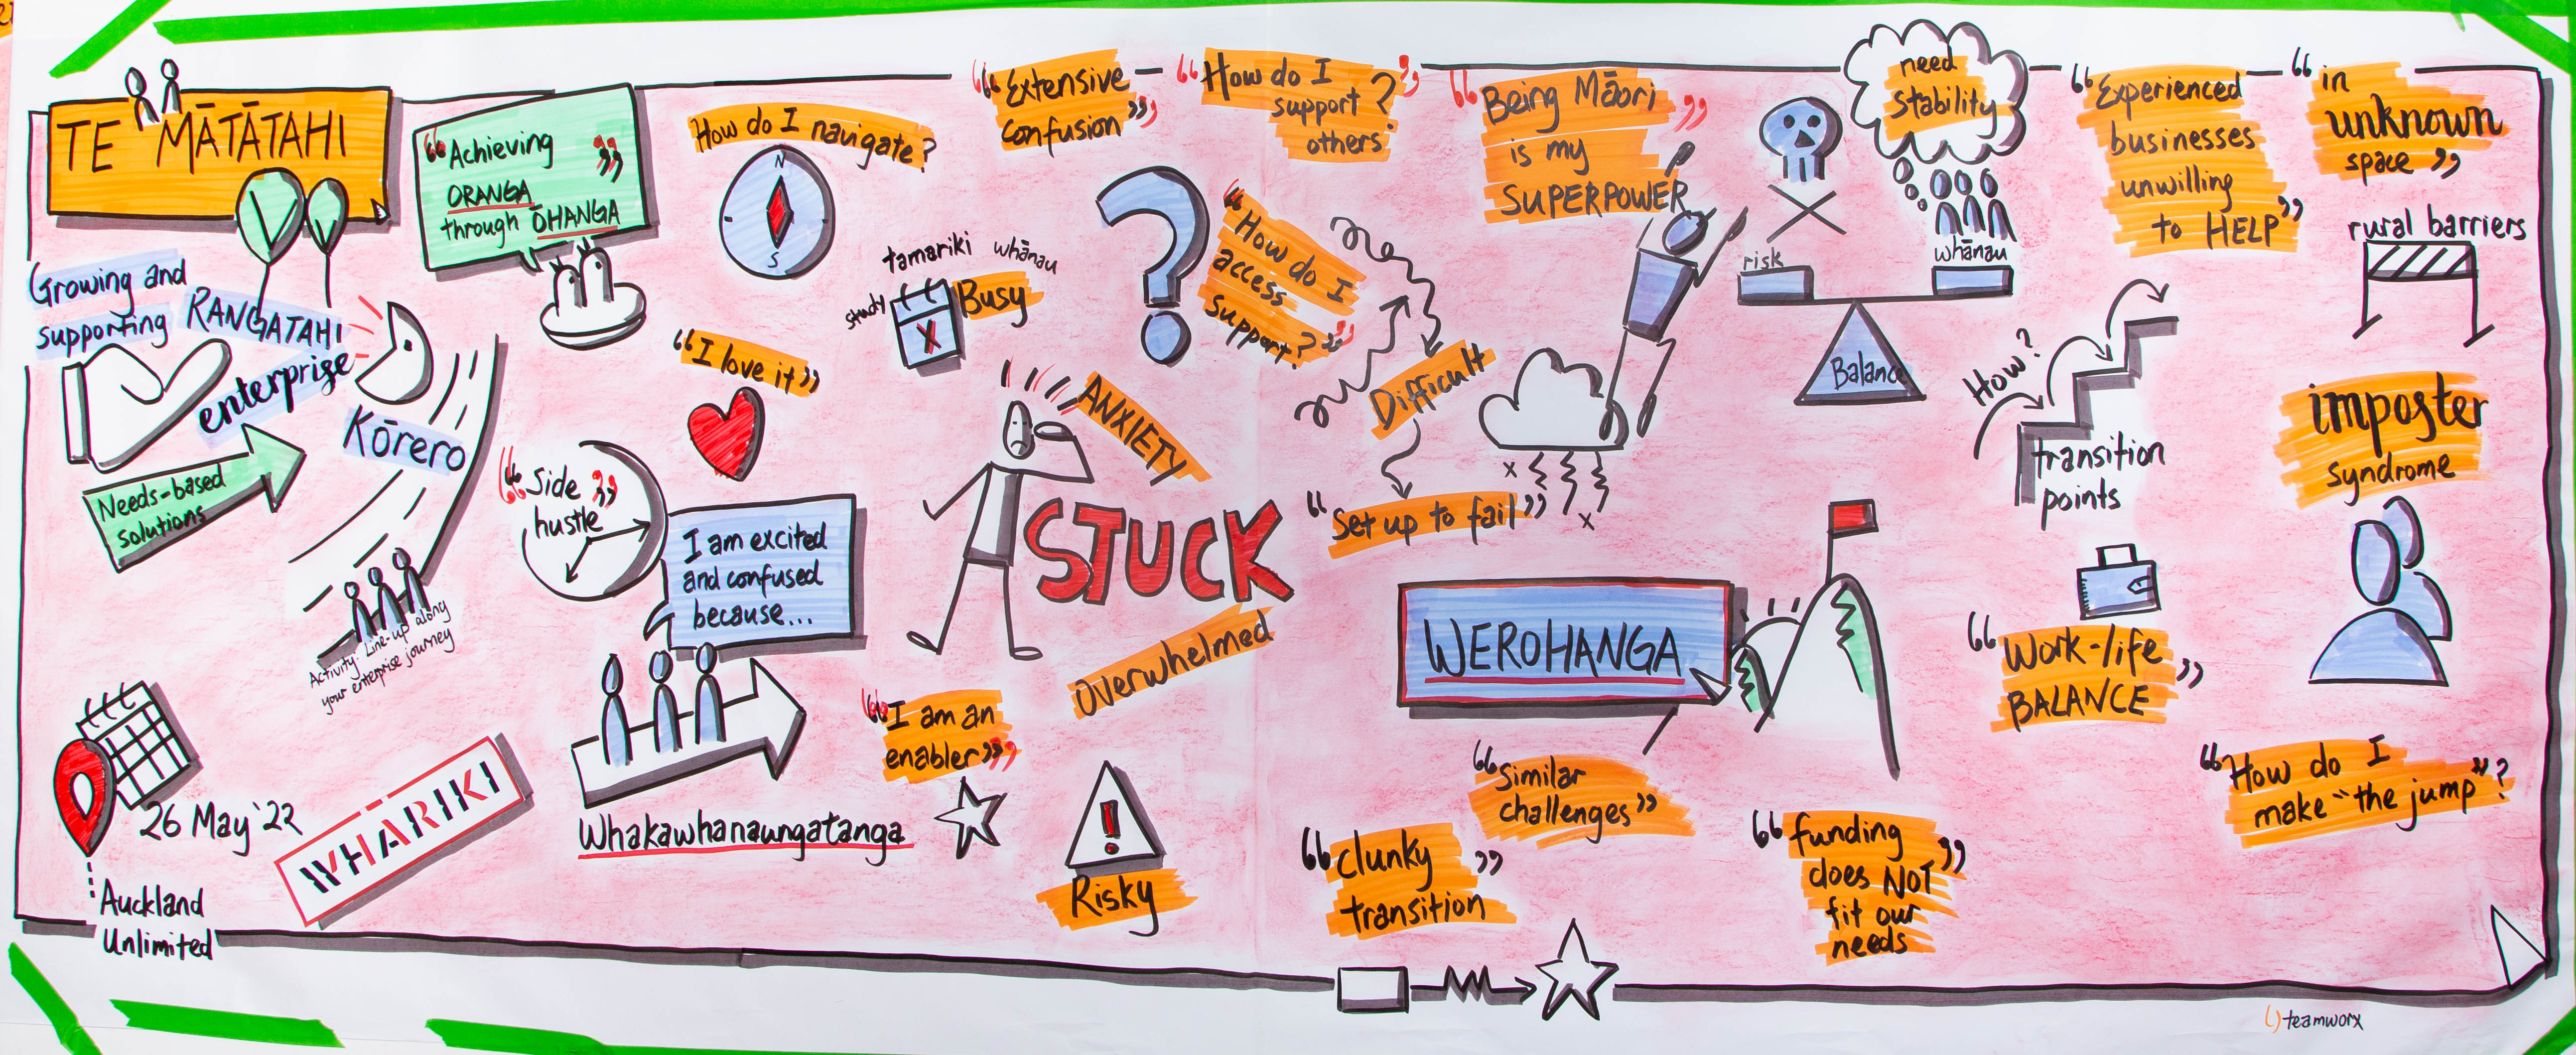 TE MĀTĀTAHI
Growing and
supporting RANGATAHI
enterprise
Kōrero
Needs-based
solutions
Activity: Line-up along
your enterprise journey
26 May '22
Auckland
Unlimited
WHĀRIKI
"Achieving
ORANGA"
through ŌHANGA
How do I navigate?
N
S
"I love it"
"Side
hustle"
I am excited
and confused
because...
Whakawhanaungatanga
tamariki whānau
study
Busy
X
"Extensive
confusion"
"How do I
support
others?"
"How do I
access
support?"
ANXIETY
STUCK
Overwhelmed
"I am an
enabler"
Risky
"Being Māori
is my
SUPERPOWER"
Difficult
"Set up to fail"
WEROHANGA
"Similar
challenges"
"clunky
transition"
"funding
does NOT
fit our
needs"
need
stability
risk
whānau
Balance
How?
transition
points
"Work-life
BALANCE"
"Experienced
businesses
unwilling
to HELP"
"in
unknown
space"
rural barriers
imposter
syndrome
"How do I
make "the jump"?
teamworx